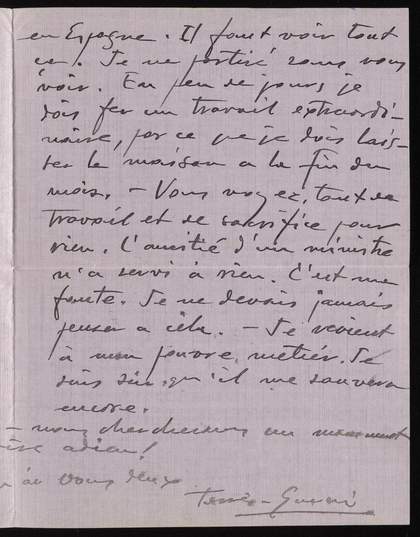 en Espagne. Il faut voir tout
ça. Je ne partiré sans vous
voir. En peu de jours je
dois fer un travail extraordi-
naire, par ce que je dois lais-
ser le maison a la fin du
mois. – Vous voyez, tout ce
travail et ce sacrifice pour
rien. L'amitié d'un ministre
n'a servi à rien. C'est une
faute. Je ne devais jamais
penser a cela. – Je revient
à mon pauvre métier. Je
suis sûr qu'il me sauvera
encore.
– nous chercherons un moment
adieu!
vous deux